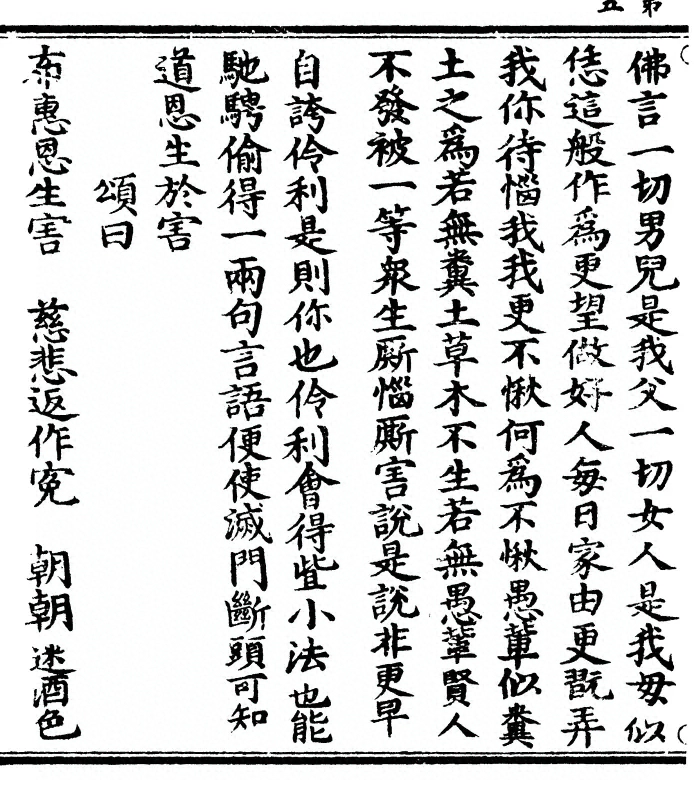 第五
佛言一切男兒是我父一切女人是我毋似
恁這般作為更望做好人每日家由更翫弄
我你待惱我我更不愀何為不愀愚輩似糞
土之為若無糞土草木不生若無愚輩賢人
不發被一等衆生厮惱厮害說是說非更早
自誇伶利是則你也伶利會得些小法也能
馳騁偷得一兩句言語便使滅門斷頭可知
道恩生於害
頌曰
布惠恩生害　慈悲返作寃　朝朝迷酒色